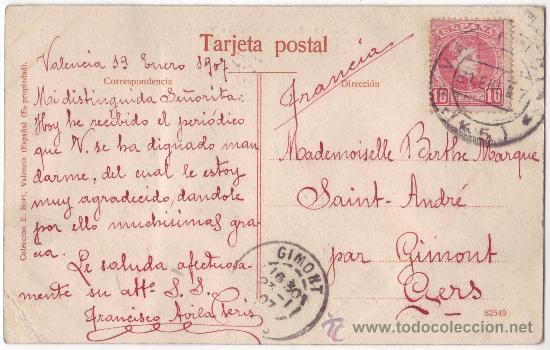 Tarjeta postal
Correspondencia
Dirección
Colección E. Bort, Valencia (España) (Es propiedad).
Valencia 19 Enero 1907
Mi distinguida Señorita:
Hoy he recibido el periódico
que V. se ha dignado man
darme, del cual le estoy
muy agradecido, dandole
por ello muchisimas gra
cia.
Le saluda afectuosa
mente su attº S. S.
Francisco Avila Peris
Francia
Mademoiselle Berthe Marque
Saint-André
par Gimont
Gers
ESPAÑA
10 10
GIMONT
07
82549
www.todocoleccion.net